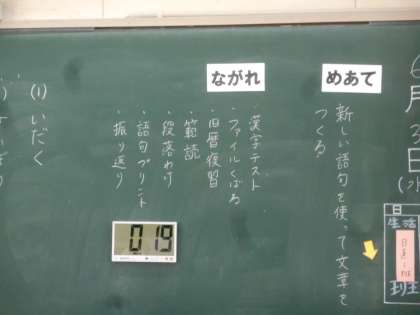 月
日
日
生活
班
めあて
新しい語句を使って文章を
つくる。
ながれ
・漢字テスト
・ファイルくばる
・旧暦復習
・範読
・段落わけ
・語句プリント
・振り返り
019
(1) いだく